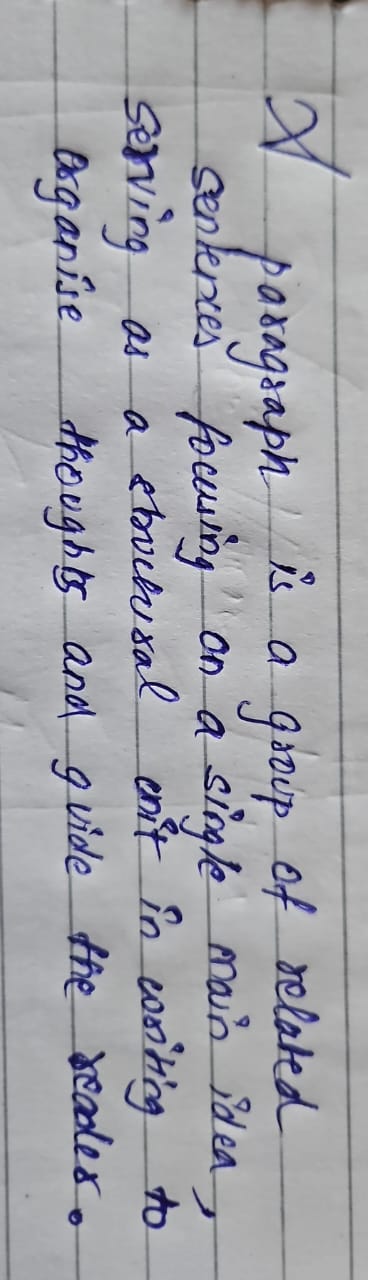 A paragraph is a group of related
sentences focusing on a single main idea,
serving as a structural unit in writing to
organise thoughts and guide the reader.